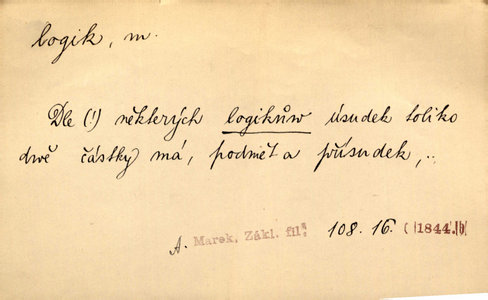 logik, m.
Dle (!) některých logikůw úsudek toliko
dwě částky má, podmět a přísudek,..
A. Marek, Zákl. fil. 108. 16. (1844.)